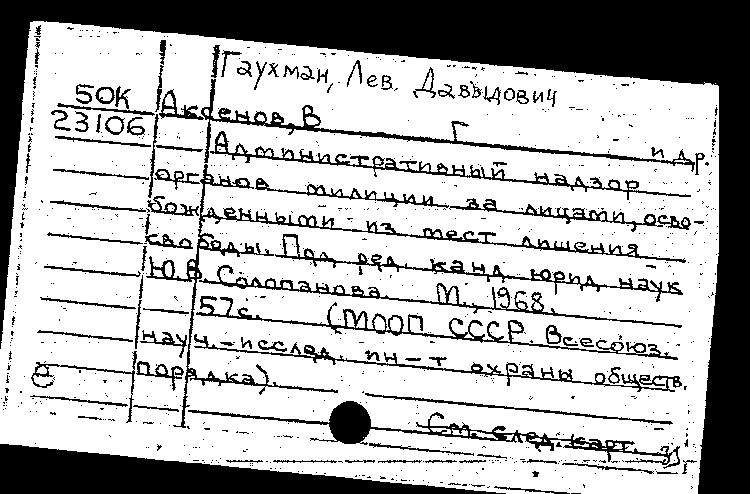 Гаухман, Лев Давыдович
50К Аксенов, В Г и др.
23106 Административный надзор
органов милиции за лицами, осво-
божденными из мест лишения
свободы. Под ред. канд. юрид. наук
Ю.В. Солопанова. М., 1968.
57с. (МООП СССР. Всесоюз.
науч.-исслед. ин-т охраны обществ.
порядка).
См. след. карт.